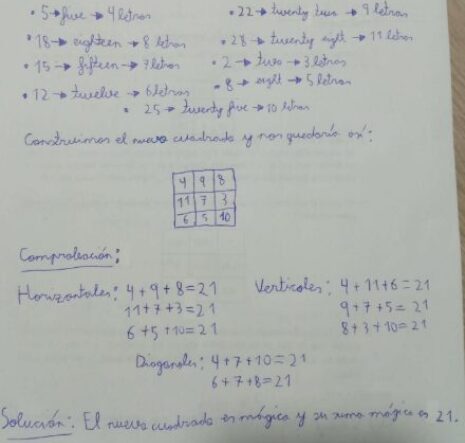 • 5 → five → 4 letras • 22 → twenty two → 9 letras
• 18 → eighteen → 8 letras • 28 → twenty eight → 11 letras
• 15 → fifteen → 7 letras • 2 → two → 3 letras
• 12 → twelve → 6 letras • 8 → eight → 5 letras
• 25 → twenty five → 10 letras
Construimos el nuevo cuadrado y nos quedaría así:
4 9 8
11 7 3
6 5 10
Comprobación:
Horizontales: 4+9+8=21 Verticales: 4+11+6=21
11+7+3=21 9+7+5=21
6+5+10=21 8+3+10=21
Diagonales: 4+7+10=21
6+7+8=21
Solución: El nuevo cuadrado es mágico y su suma mágica es 21.